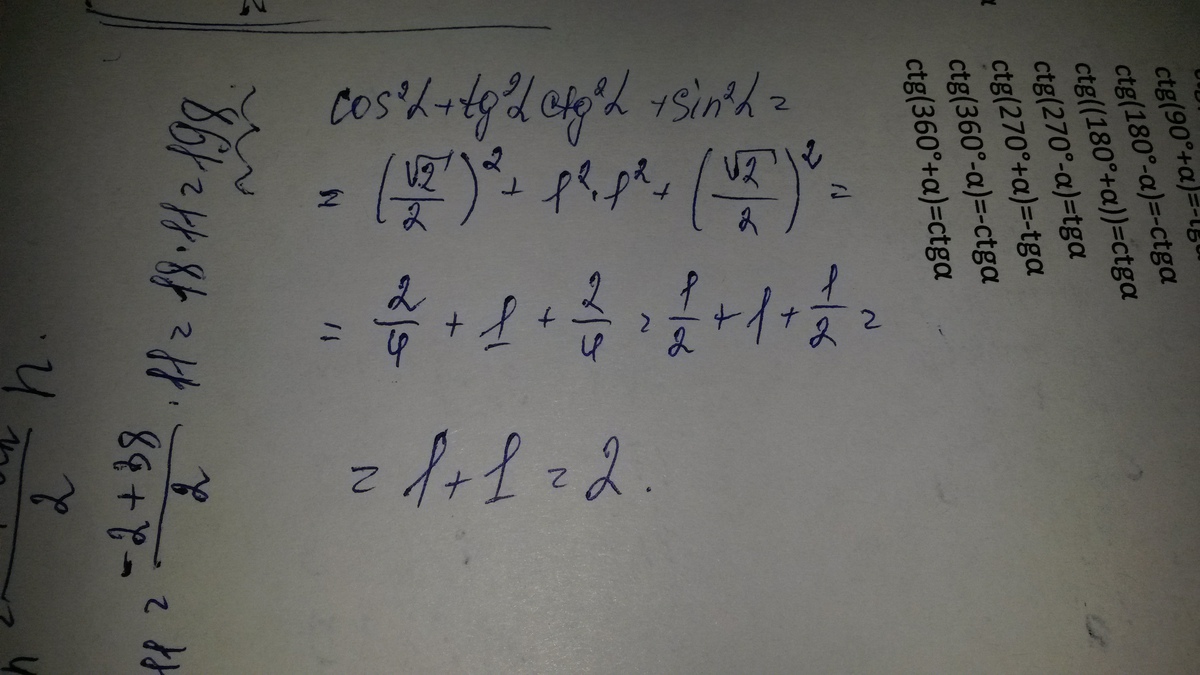 cos²α + tg²α ctg²α + sin²α =
= (√2/2)² + 1² · 1² + (√2/2)² =
= 2/4 + 1 + 2/4 = 1/2 + 1 + 1/2 =
= 1 + 1 = 2.
-2 + 38 / 2 · 11 = 18 · 11 = 198
ctg(90°+α)=-tgα
ctg(180°-α)=-ctgα
ctg((180°+α))=ctgα
ctg(270°-α)=tgα
ctg(270°+α)=-tgα
ctg(360°-α)=-ctgα
ctg(360°+α)=ctgα